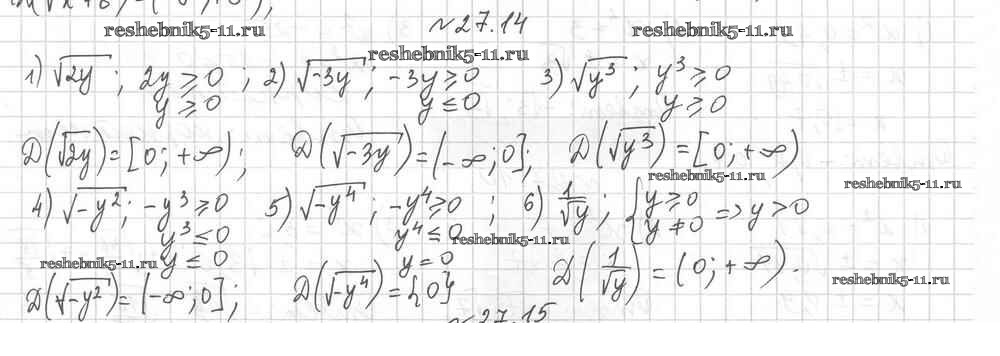 №27.14
reshebnik5-11.ru reshebnik5-11.ru
reshebnik5-11.ru
1) √2y ; 2y ≥ 0 ; 2) √-3y ; -3y ≥ 0 3) √y³ ; y³ ≥ 0
y ≥ 0 y ≤ 0 y ≥ 0
D(√2y) = [0; +∞); D(√-3y) = (-∞; 0]; D(√y³) = [0; +∞)
reshebnik5-11.ru reshebnik5-11.ru
4) √-y²; -y³ ≥ 0 5) √-y⁴ ; -y⁴ ≥ 0 ; 6) 1/√y ; { y ≥ 0
y³ ≤ 0 y⁴ ≤ 0 y ≠ 0 => y > 0
reshebnik5-11.ru
reshebnik5-11.ru y ≤ 0 y = 0 reshebnik5-11.ru
D(√-y²) = (-∞; 0]; D(√-y⁴) = {0} D(1/√y) = (0; +∞).
№27.15